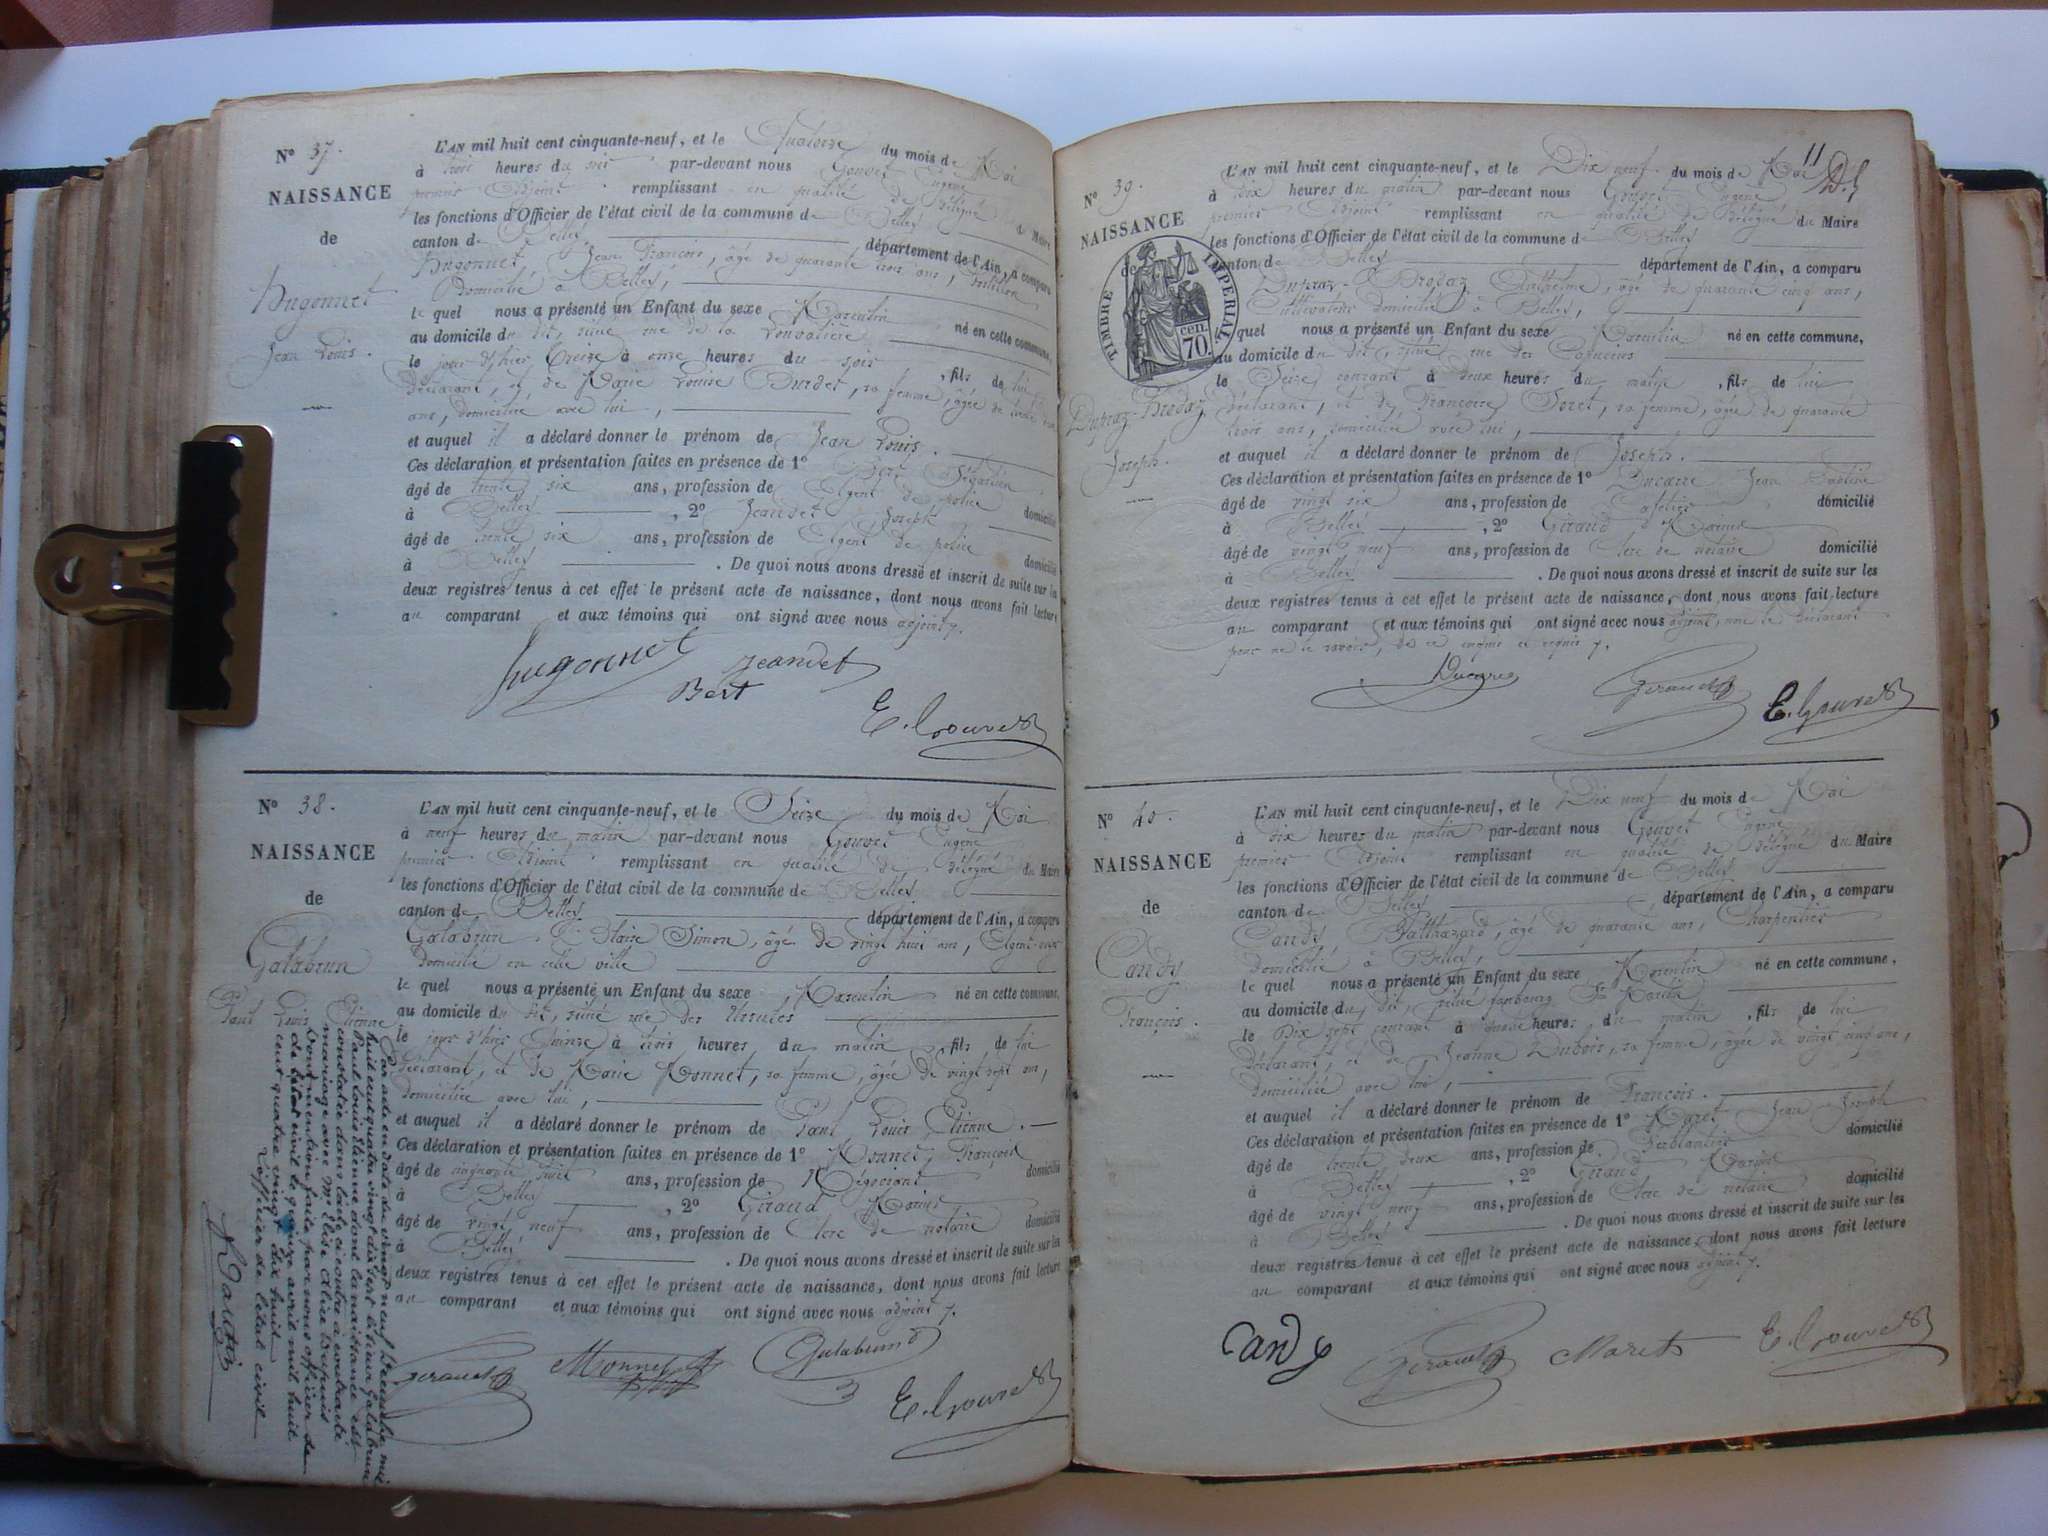 N° 37.
NAISSANCE
de
Hugonnet
Jean Louis.
L'AN mil huit cent cinquante-neuf, et le Quatorze du mois de Mai
à trois heures du soir par-devant nous Gouvet Eugène
premier Adjoint remplissant en qualité de Délégué du Maire
les fonctions d'Officier de l'état civil de la commune de Belley
canton de Belley département de l'Ain, a comparu
Hugonnet, Jean François, âgé de quarante trois ans, Postillon
Domicilié à Belley,
le quel nous a présenté un Enfant du sexe Masculin né en cette commune,
au domicile du dit, situé rue de la
le jour d'hier treize à onze heures du soir, fils de lui
Déclarant, et de Marie Louise Burdet, sa femme, âgée de trente
ans, domiciliée avec lui,
et auquel il a déclaré donner le prénom de Jean Louis.
Ces déclaration et présentation faites en présence de 1° Bert Sébastien,
âgé de trente six ans, profession de Agent de police domicilié
à Belley, 2° Jeandet Joseph
âgé de trente six ans, profession de Agent de police domicilié
à Belley. De quoi nous avons dressé et inscrit de suite sur les
deux registres tenus à cet effet le présent acte de naissance, dont nous avons fait lecture
au comparant et aux témoins qui ont signé avec nous adjoint.
Hugonnet Jeandet
Bert
E. Gouvet
N° 38.
NAISSANCE
de
Galabrun
Paul Louis Etienne
L'AN mil huit cent cinquante-neuf, et le Seize du mois de Mai
à neuf heures du matin par-devant nous Gouvet Eugène
premier Adjoint remplissant en qualité de Délégué du Maire
les fonctions d'Officier de l'état civil de la commune de Belley
canton de Belley département de l'Ain, a comparu
Galabrun, Blaise Simon, âgé de vingt huit ans, Agent
domicilié en cette ville
le quel nous a présenté un Enfant du sexe Masculin né en cette commune,
au domicile du dit, situé rue des Ursules
le jour d'hier Quinze à trois heures du matin, fils de lui
Déclarant, et de Marie Monnet, sa femme, âgée de vingt sept ans,
domiciliée avec lui,
et auquel il a déclaré donner le prénom de Paul Louis Etienne.
Ces déclaration et présentation faites en présence de 1° Monnet, François
âgé de cinquante huit ans, profession de Négociant domicilié
à Belley, 2° Giraud Marius
âgé de vingt neuf ans, profession de Clerc de notaire domicilié
à Belley. De quoi nous avons dressé et inscrit de suite sur les
deux registres tenus à cet effet le présent acte de naissance, dont nous avons fait lecture
au comparant et aux témoins qui ont signé avec nous adjoint.
Giraud Monnet Galabrun
E. Gouvet
Par acte en date du vingt neuf Décembre mil
huit cent quatre vingt dix sept le sieur Galabrun
Paul Louis Etienne dont la naissance est
constatée dans l'acte ci contre a contracté
mariage avec Mlle Elise Aline Dupuis
Dont mention faite par nous officier de
de l'état civil le quinze avril mil huit
cent quatre vingt dix huit
L'officier de l'état civil
N° 39.
NAISSANCE
de
TIMBRE IMPERIAL
70 cen.
Dupraz-Brodaz
Joseph.
11
L'AN mil huit cent cinquante-neuf, et le Dix neuf du mois de Mai
à dix heures du matin par-devant nous Gouvet Eugène
premier Adjoint remplissant en qualité de Délégué du Maire
les fonctions d'Officier de l'état civil de la commune de Belley
canton de Belley département de l'Ain, a comparu
Dupraz-Brodaz Anthelme, âgé de quarante cinq ans,
Cultivateur domicilié à Belley,
le quel nous a présenté un Enfant du sexe Masculin né en cette commune,
au domicile du dit, situé rue des Capucins
le Seize courant à deux heures du matin, fils de lui
Déclarant, et de Françoise Soret, sa femme, âgée de quarante
trois ans, domiciliée avec lui,
et auquel il a déclaré donner le prénom de Joseph.
Ces déclaration et présentation faites en présence de 1° Ducarre Jean
âgé de vingt six ans, profession de Cafetier domicilié
à Belley, 2° Giraud Marius
âgé de vingt neuf ans, profession de Clerc de notaire domicilié
à Belley. De quoi nous avons dressé et inscrit de suite sur les
deux registres tenus à cet effet le présent acte de naissance, dont nous avons fait lecture
au comparant et aux témoins qui ont signé avec nous adjoint, non le déclarant
pour ne le savoir, de ce enquis et requis.
Ducarre Giraud E. Gouvet
N° 40.
NAISSANCE
de
Candy
François.
L'AN mil huit cent cinquante-neuf, et le Dix neuf du mois de Mai
à dix heures du matin par-devant nous Gouvet Eugène
premier Adjoint remplissant en qualité de Délégué du Maire
les fonctions d'Officier de l'état civil de la commune de Belley
canton de Belley département de l'Ain, a comparu
Candy, Balthazard, âgé de quarante ans, Charpentier
domicilié à Belley,
le quel nous a présenté un Enfant du sexe Masculin né en cette commune,
au domicile du dit, situé faubourg St Martin
le Dix sept courant à quatre heures du matin, fils de lui
Déclarant, et de Jeanne Dubois, sa femme, âgée de vingt cinq ans,
domiciliée avec lui,
et auquel il a déclaré donner le prénom de François.
Ces déclaration et présentation faites en présence de 1° Maret Jean Joseph
âgé de trente deux ans, profession de Ferblantier domicilié
à Belley, 2° Giraud Marius
âgé de vingt neuf ans, profession de Clerc de notaire domicilié
à Belley. De quoi nous avons dressé et inscrit de suite sur les
deux registres tenus à cet effet le présent acte de naissance, dont nous avons fait lecture
au comparant et aux témoins qui ont signé avec nous adjoint.
Candy Giraud Maret E. Gouvet